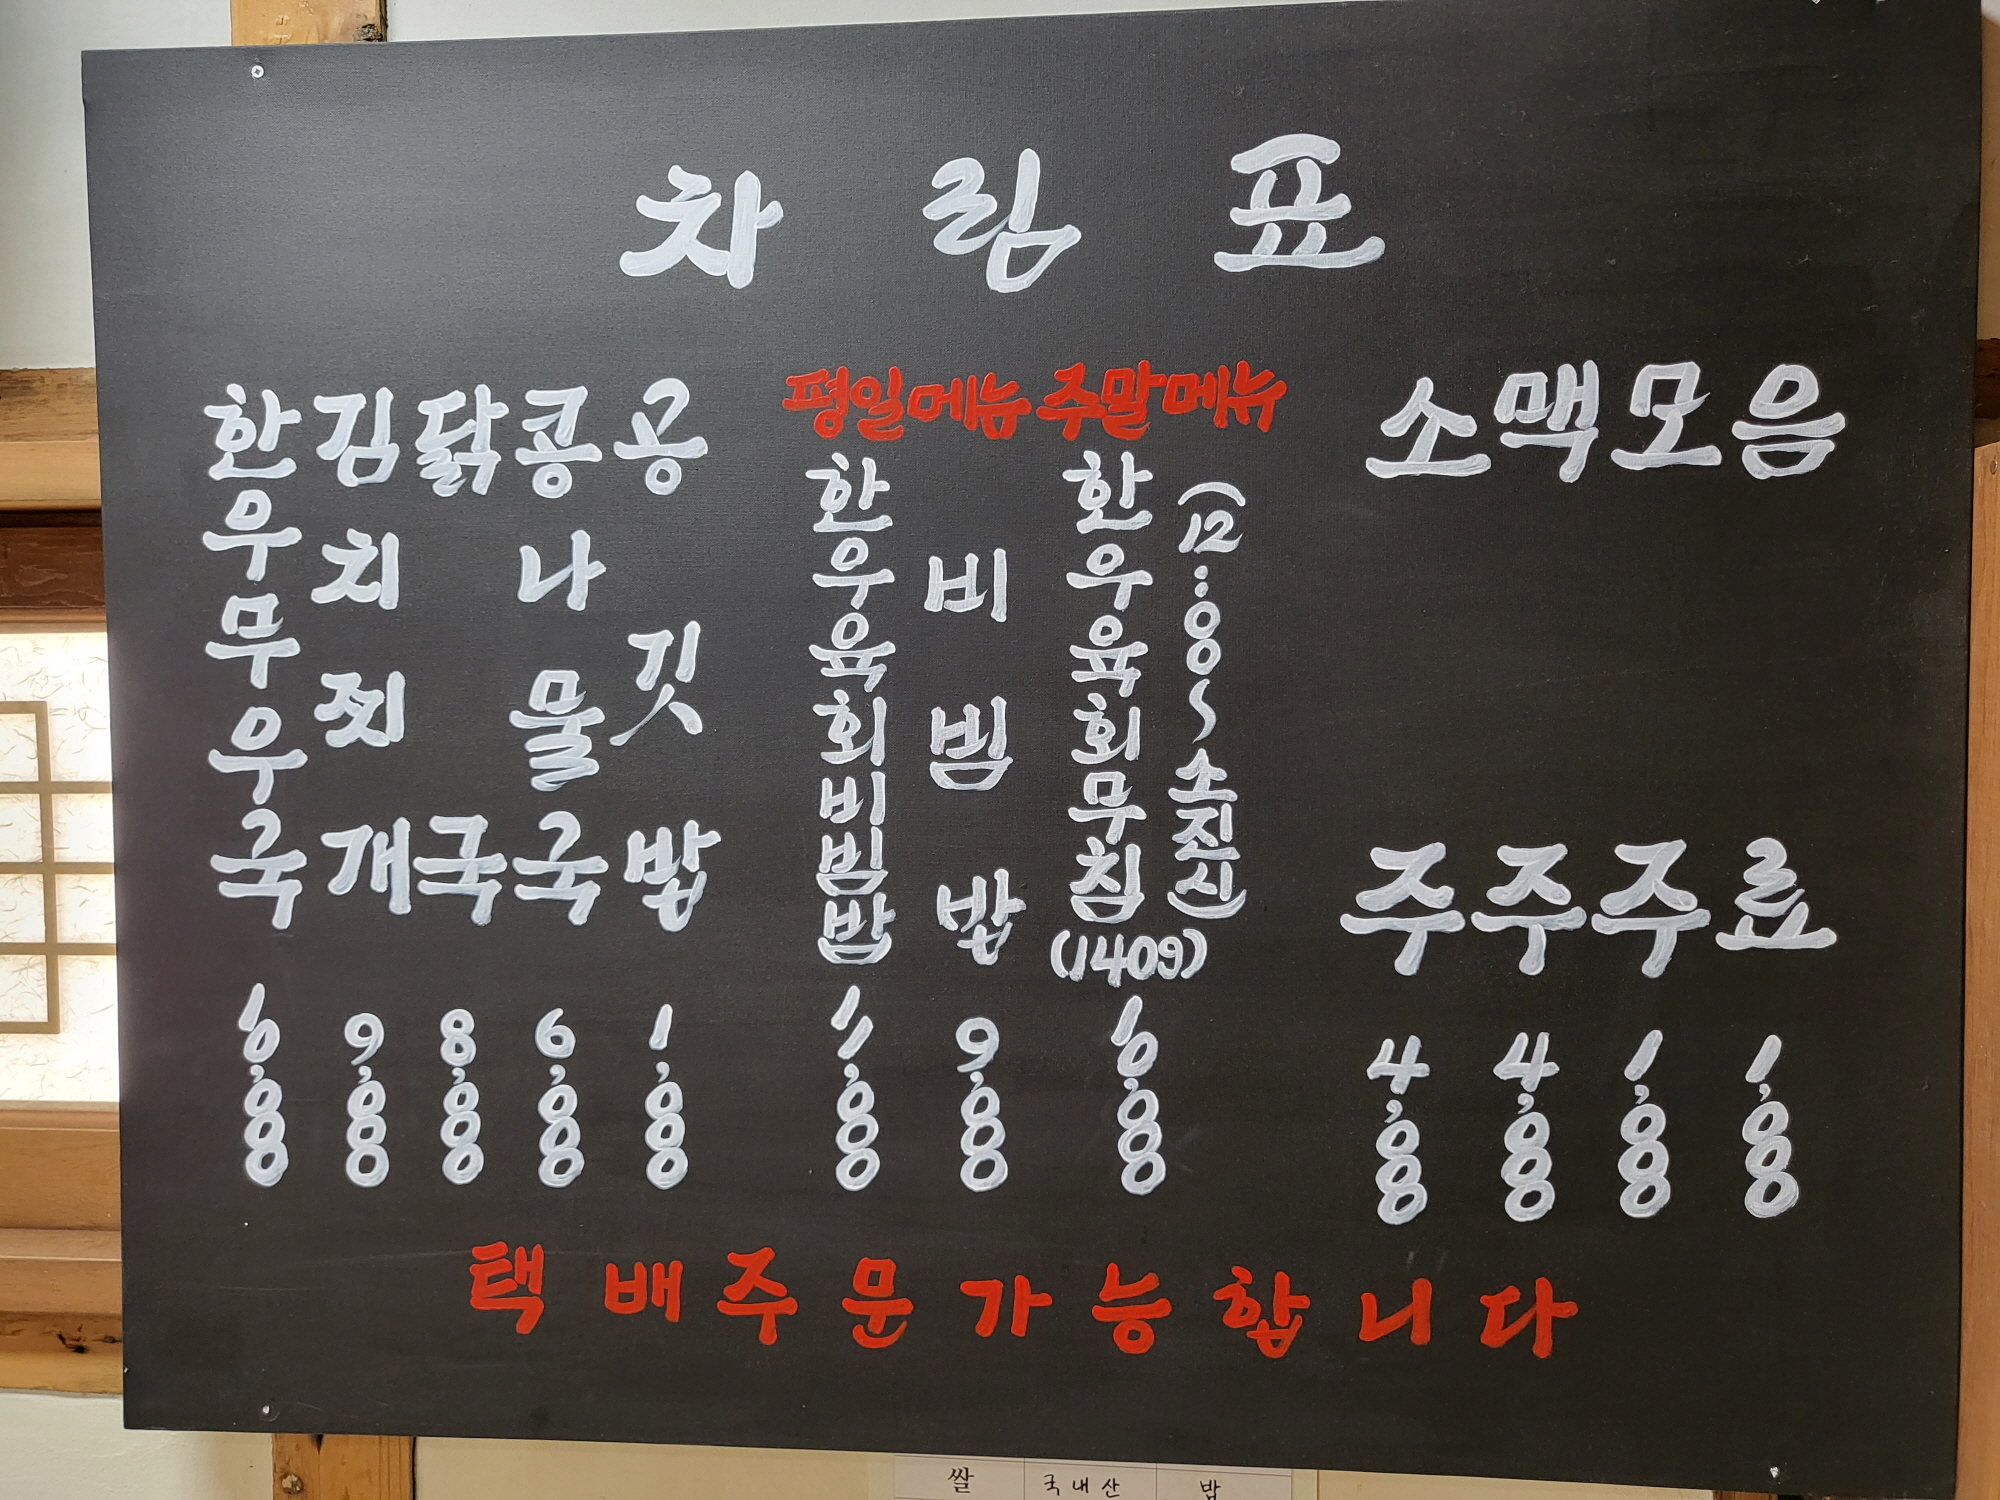 차림표
한우무우국 10,000
김치찌개 9,000
닭국 8,000
콩나물국 6,000
공깃밥 1,000
평일메뉴
한우육회비빔밥 11,000
비빔밥 9,000
주말메뉴
한우육회무침(140g) 10,000
(12:00~소진시)
소주 4,000
맥주 4,000
모주 1,000
음료 1,000
택배주문가능합니다
쌀 국내산 밥